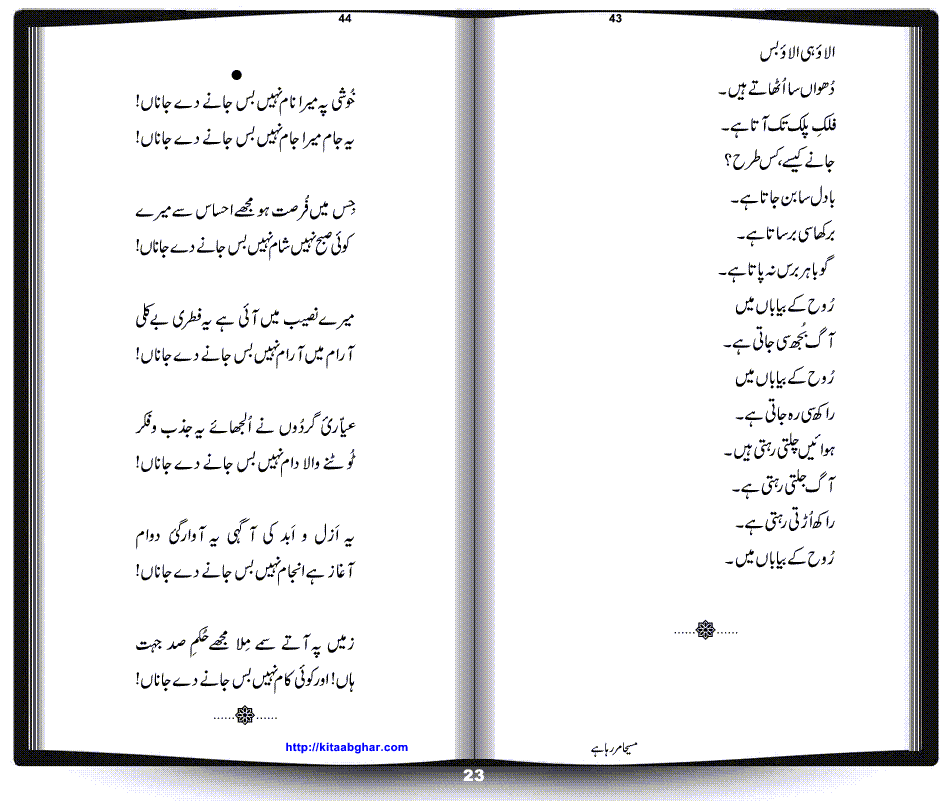 43
الاؤ ہی الاؤ بس
دُھواں سا اُٹھاتے ہیں۔
فلکِ پلک تک آتا ہے۔
جانے کیسے، کس طرح؟
بادل سا بن جاتا ہے۔
برکھا سی برساتا ہے۔
گو باہر برس نہ پاتا ہے۔
رُوح کے بیاباں میں
آگ بُجھ سی جاتی ہے۔
رُوح کے بیاباں میں
راکھ سی رہ جاتی ہے۔
ہوائیں چلتی رہتی ہیں۔
آگ جلتی رہتی ہے۔
راکھ اُڑتی رہتی ہے۔
رُوح کے بیاباں میں۔
مسیحا مر رہا ہے
44
خُوشی پہ میرا نام نہیں بس جانے دے جاناں!
یہ جام میرا جام نہیں بس جانے دے جاناں!
جِس میں فُرصت ہو مجھے احساس سے میرے
کوئی صبح نہیں شام نہیں بس جانے دے جاناں!
میرے نصیب میں آئی ہے یہ فطری بے کلی
آرام میں آرام نہیں بس جانے دے جاناں!
عیاّرئ گردُوں نے اُلجھائے یہ جذب و فکر
ٹُوٹنے والا دام نہیں بس جانے دے جاناں!
یہ اَزل و اَبد کی آگہی یہ آوارگئ دوام
آغاز ہے انجام نہیں بس جانے دے جاناں!
زمیں پہ آتے سمے مِلا مجھے حُکمِ صد جہت
ہاں! اور کوئی کام نہیں بس جانے دے جاناں!
http://kitaabghar.com
23